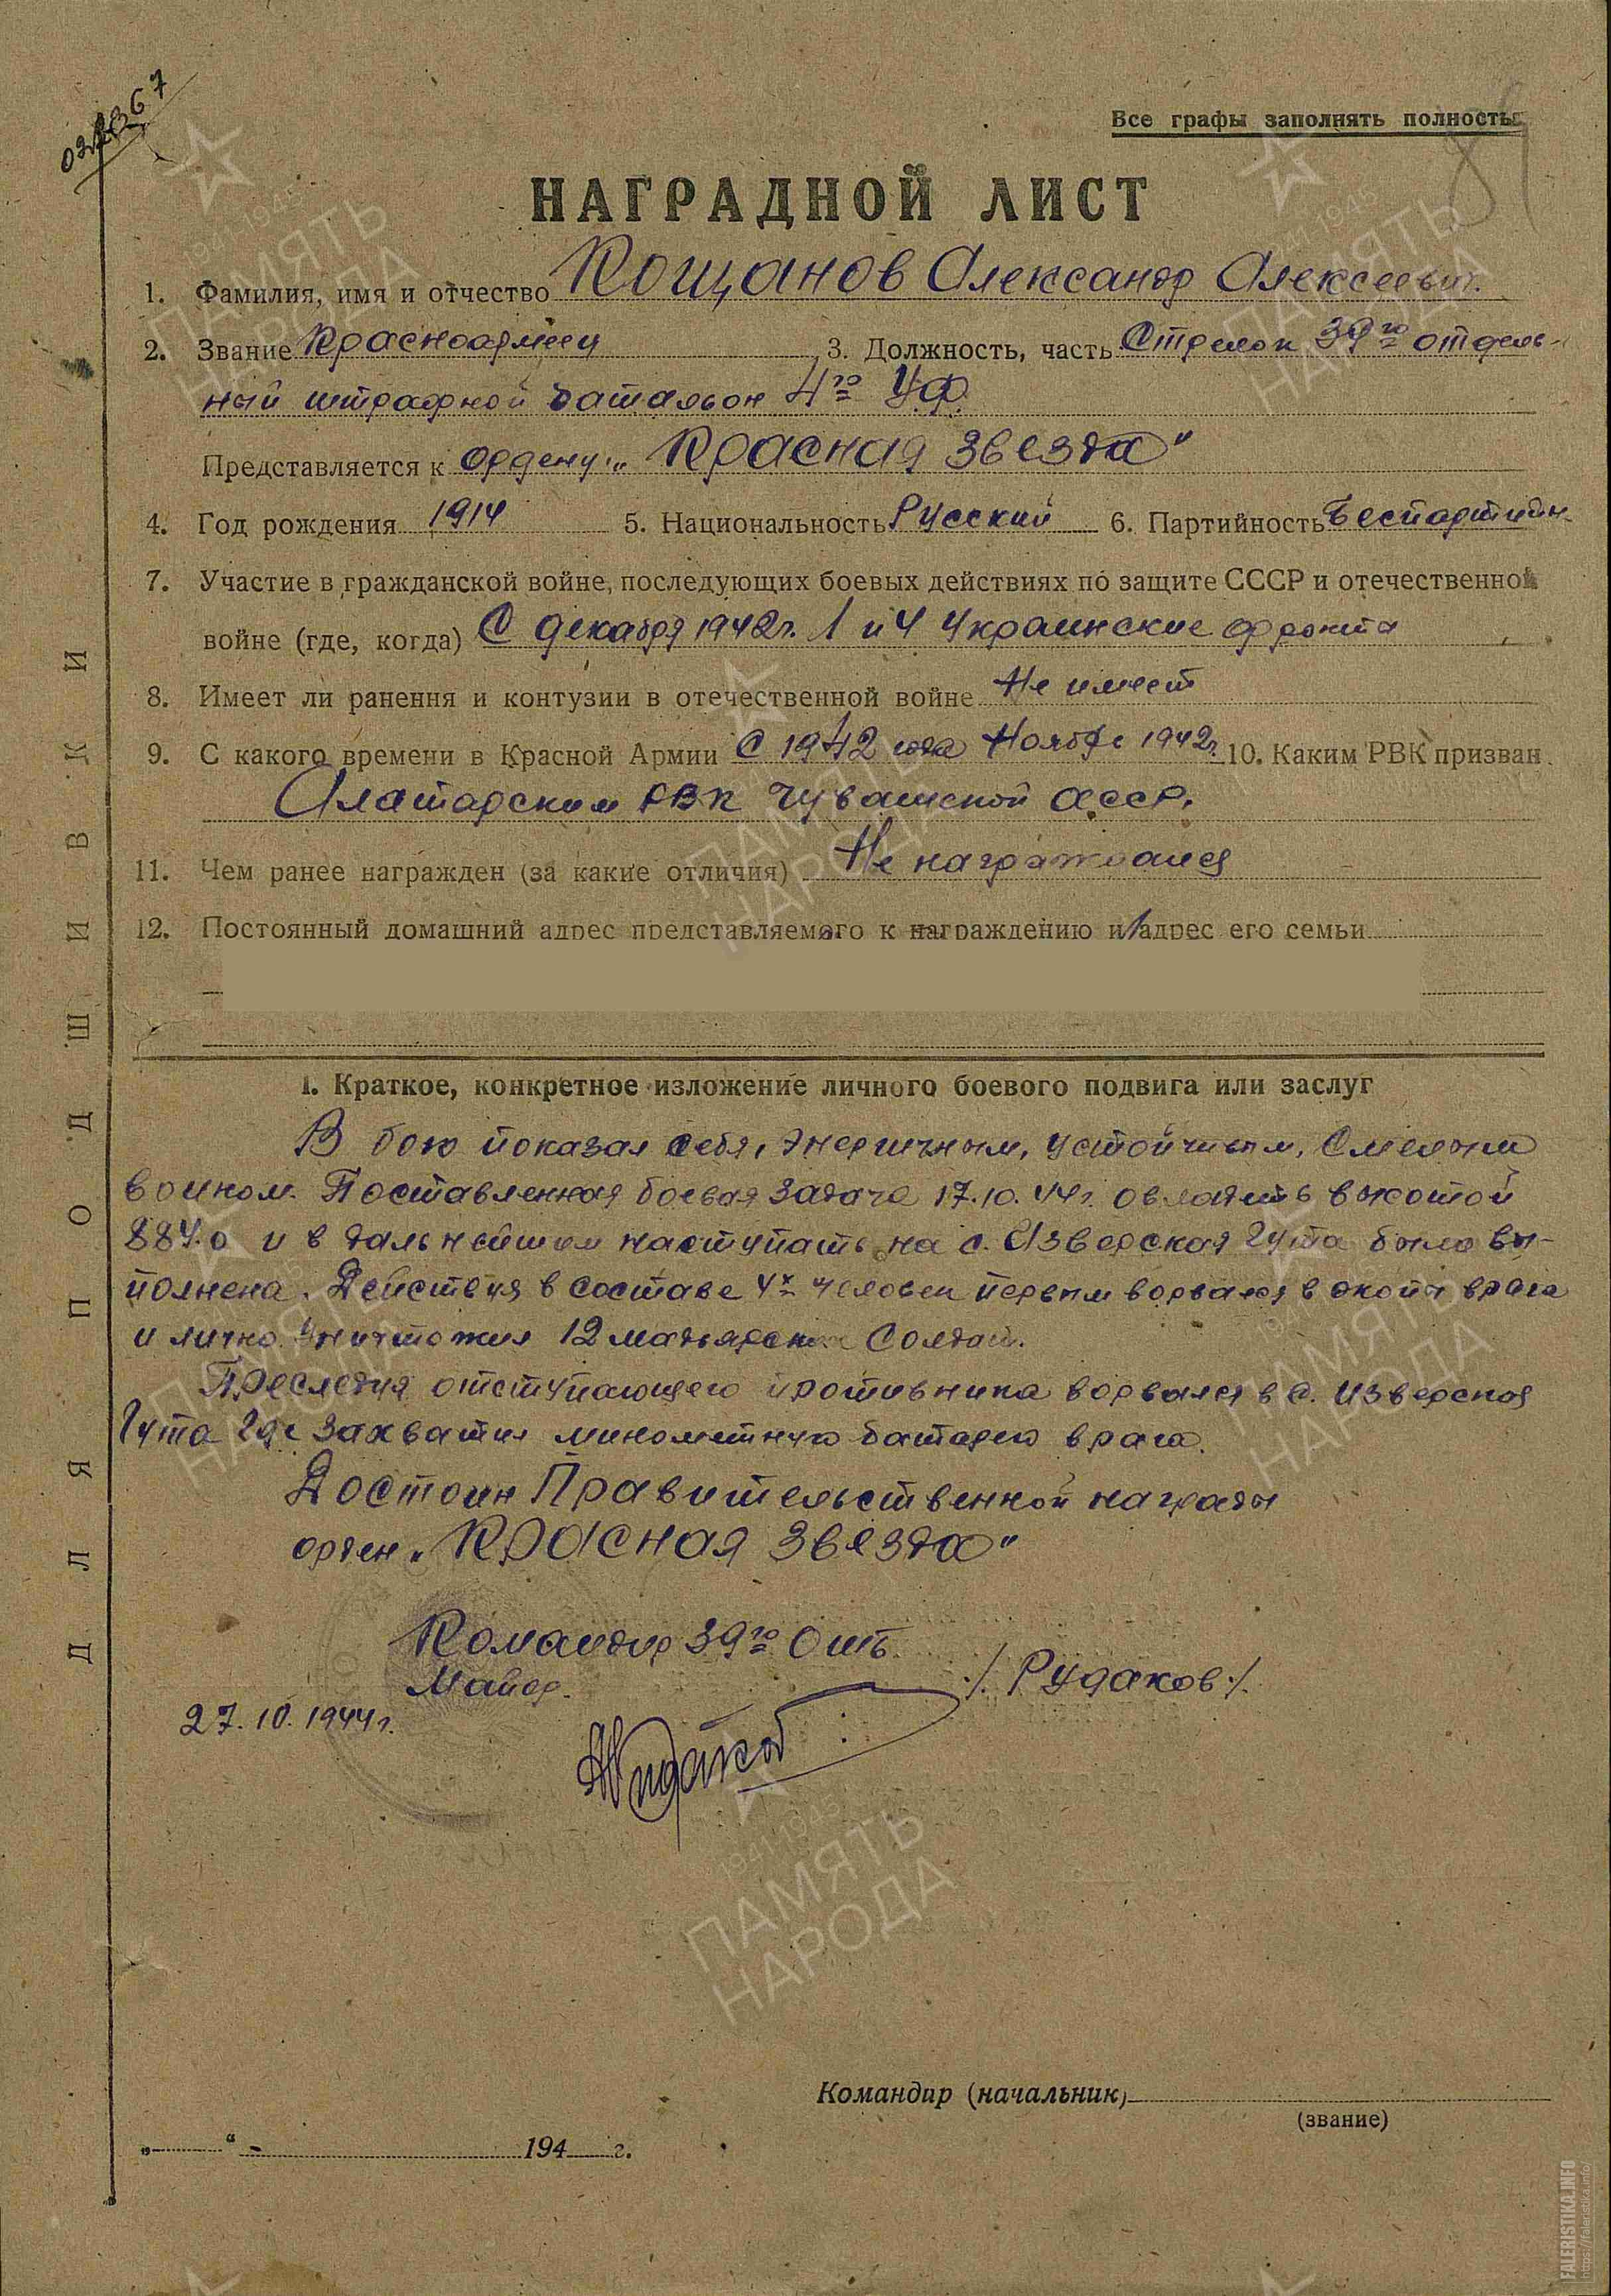 Все графы заполнять полностью
89
НАГРАДНОЙ ЛИСТ
1. Фамилия, имя и отчество Кощанов Александр Алексеевич.
2. Звание Красноармеец 3. Должность, часть Стрелок 39го отдель-
ный штрафной батальон 4го УФ.
Представляется к ордену: „Красная Звезда"
4. Год рождения 1914 5. Национальность Русский 6. Партийность Беспартийн.
7. Участие в гражданской войне, последующих боевых действиях по защите СССР и отечественной
войне (где, когда) С декабря 1942г. 1 и 4 Украинские фронта
8. Имеет ли ранения и контузии в отечественной войне Не имеет
9. С какого времени в Красной Армии С 1942 года Ноябрь 1942г. 10. Каким РВК призван
Алатарским РВК Чувашской АССР.
11. Чем ранее награжден (за какие отличия) Не награждался
12. Постоянный домашний адрес представляемого к награждению и адрес его семьи
I. Краткое, конкретное изложение личного боевого подвига или заслуг
В бою показал себя, энергичным, устойчивым, смелым
воином. Поставленная боевая задача 17.10.44г. овладеть высотой
884.0 и в дальнейшем наступать на с. Изверская Гута была вы-
полнена. Действуя в составе 4х человек первым ворвался в окопы врага
и лично уничтожил 12 мадьярских солдат.
Преследуя отступающего противника ворвался в с. Изверская
Гута где захватил минометную батарею врага.
Достоин Правительственной награды
орден „Красная Звезда"
Командир 39го ОШБ
Майор. /Рудаков/.
27.10.1944г.
Командир (начальник)
(звание)
„ " 194 г.
ДЛЯ ПОДШИВКИ
1941-1945
ПАМЯТЬ
НАРОДА
FALERISTIKA.INFO
https://faleristika.info/